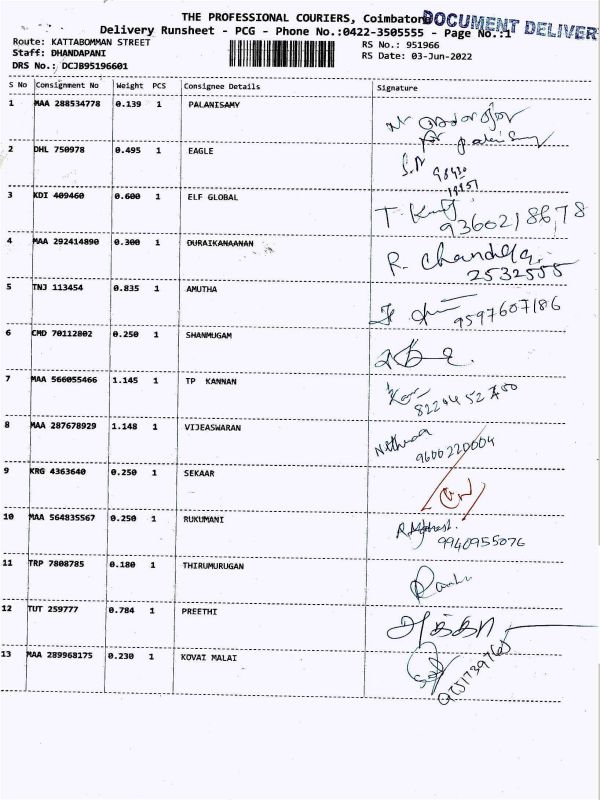 THE PROFESSIONAL COURIERS, Coimbatore
DOCUMENT DELIVER
Delivery Runsheet - PCG - Phone No.:0422-3505555 - Page No.:1
Route: KATTABOMMAN STREET
RS No.: 951966
Staff: DHANDAPANI
RS Date: 03-Jun-2022
DRS No.: DCJB95196601
S No Consignment No Weight PCS Consignee Details Signature
1 MAA 288534778 0.139 1 PALANISAMY
2 DHL 750978 0.495 1 EAGLE
S.P 98430
3 KDI 409460 0.600 1 ELF GLOBAL
9360218678
4 MAA 292414890 0.300 1 DURAIKANAANAN
R. Chandra
2532555
5 TNJ 113454 0.835 1 AMUTHA
9597607186
6 CMD 70112802 0.250 1 SHANMUGAM
7 MAA 566055466 1.145 1 TP KANNAN
8 MAA 287678929 1.148 1 VIJEASWARAN
9600220004
9 KRG 4363640 0.250 1 SEKAAR
10 MAA 564835567 0.250 1 RUKUMANI
9940955076
11 TRP 7808785 0.180 1 THIRUMURUGAN
12 TUT 259777 0.784 1 PREETHI
13 MAA 289968175 0.230 1 KOVAI MALAI